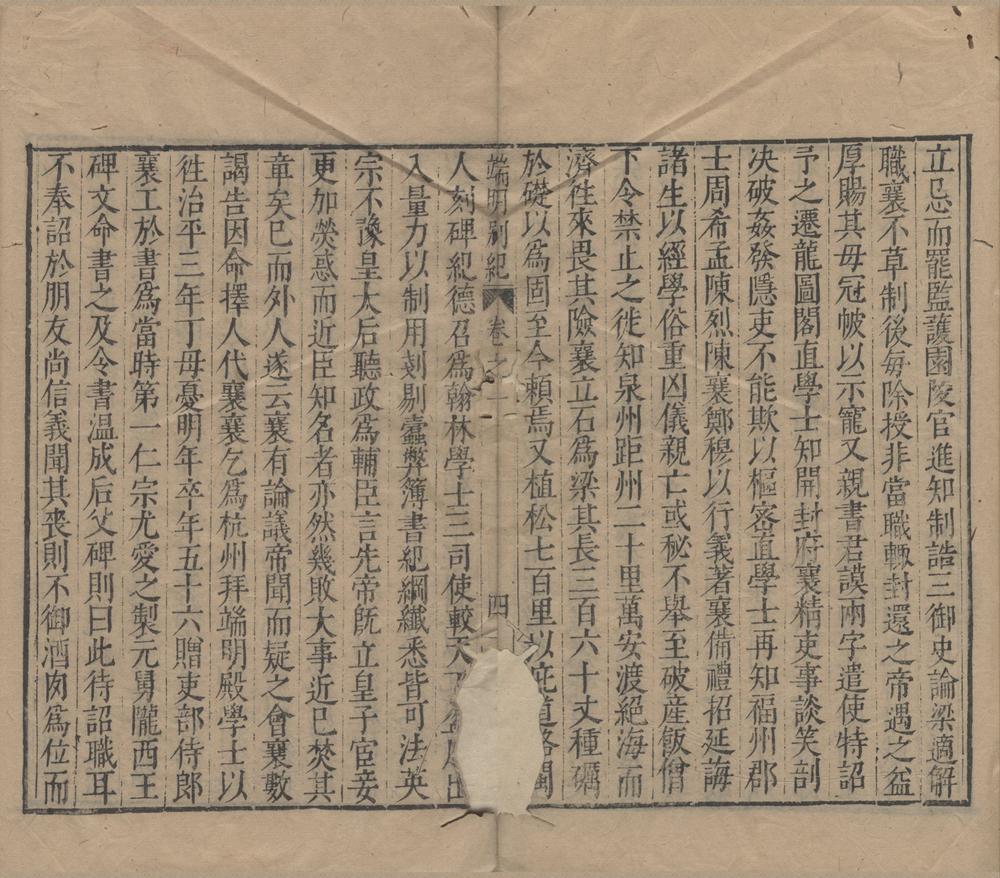 立忌而罷監護園陵官進知制誥三御史論梁適解
職襄不草制後每除授非當職輒封還之帝遇之益
厚賜其母冠帔以示寵又親書君謨兩字遣使特詔
予之遷龍圖閣直學士知開封府襄精吏事談笑剖
决破姦發隱吏不能欺以樞密直學士再知福州郡
士周希孟陳烈陳襄鄭穆以行義著襄備禮招延誨
諸生以經學俗重凶儀親亡或秘不舉至破産飯僧
下令禁止之徙知泉州距州二十里萬安渡絕海而
濟徃來畏其險襄立石為梁其長三百六十丈種礪
於礎以為固至今賴焉又植松七百里以庇道路閩
端明別紀 卷之一 四
人刻碑紀德召為翰林學士三司使較天
入量力以制用剗剔蠹弊簿書紀綱纖悉皆可法英
宗不豫皇太后聽政為輔臣言先帝旣立皇子宦妾
更加熒惑而近臣知名者亦然幾敗大事近已焚其
章矣已而外人遂云襄有論議帝聞而疑之會襄數
謁告因命擇人代襄襄乞為杭州拜端明殿學士以
徃治平三年丁母憂明年卒年五十六贈吏部侍郎
襄工於書為當時第一仁宗尤愛之製元舅隴西王
碑文命書之及令書温成后父碑則曰此待詔職耳
不奉詔於朋友尚信義聞其喪則不御酒肉為位而